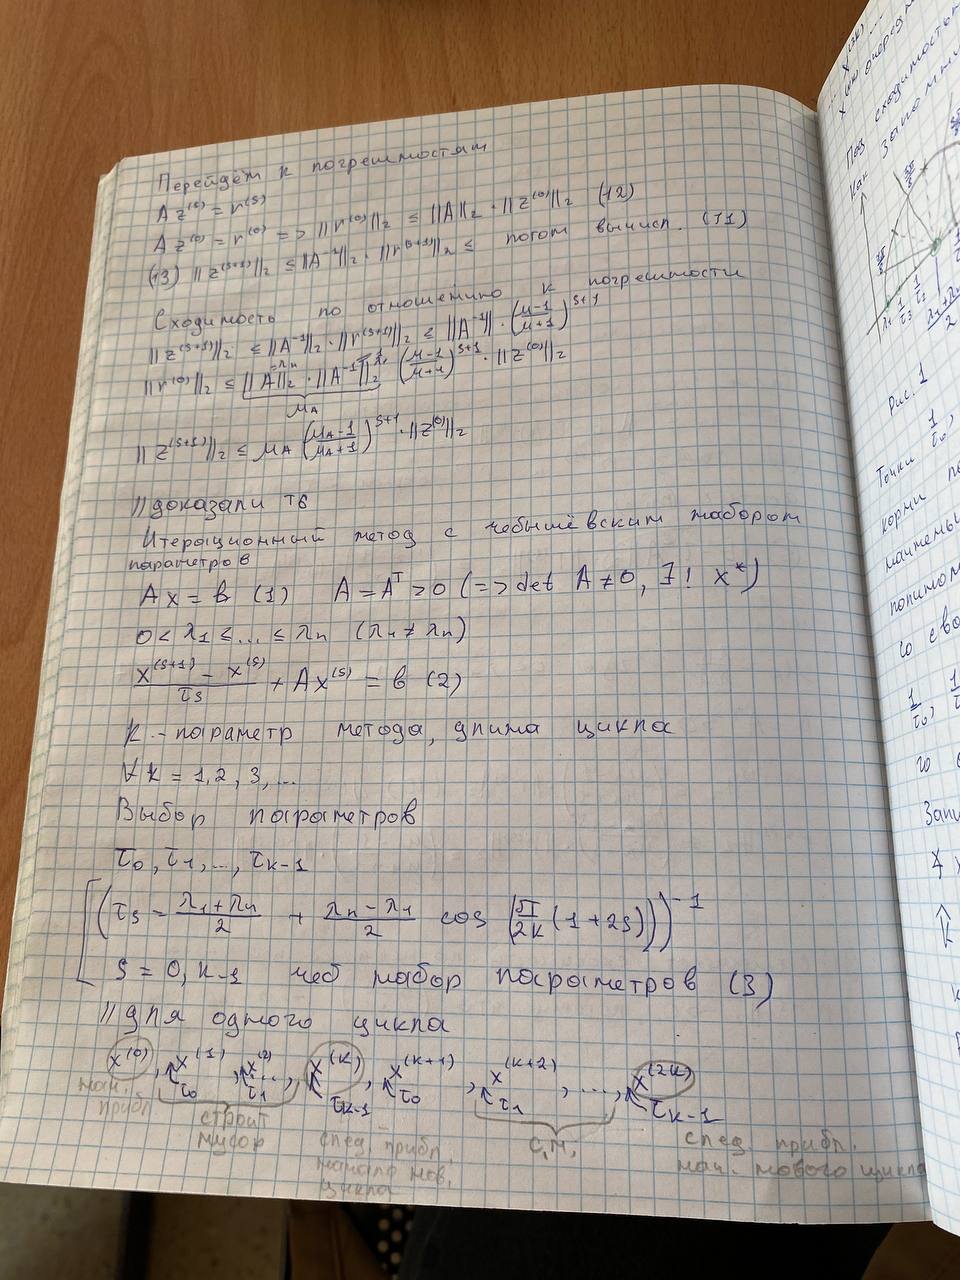 Перейдём к погрешностям
A z^(s) = r^(s)
A z^(0) = r^(0) => ||r^(0)||₂ ≤ ||A||₂ · ||z^(0)||₂ (12)
(13) ||z^(s+1)||₂ ≤ ||A⁻¹||₂ · ||r^(s+1)||₂ ≤ потом вычисл. (11)
Сходимость по отношению к погрешности
||z^(s+1)||₂ ≤ ||A⁻¹||₂ · ||r^(s+1)||₂ ≤ ||A⁻¹|| · ((μ-1)/(μ+1))^(s+1)
||r^(0)||₂ ≤ ||A||₂ · ||A⁻¹||₂ ((μ-1)/(μ+1))^(s+1) · ||z^(0)||₂
μ_A
||z^(s+1)||₂ ≤ μ_A ((μ_A-1)/(μ_A+1))^(s+1) · ||z^(0)||₂
||доказали тв
Итерационный метод с чебышёвским набором
параметров
Ax = в (1) A = Aᵀ > 0 (=> det A ≠ 0, ∃! x*)
0 < λ₁ ≤ ... ≤ λₙ (λ₁ ≠ λₙ)
(x^(s+1) - x^(s))/τₛ + Ax^(s) = в (2)
k - параметр метода, длина цикла
∀ k = 1, 2, 3, ...
Выбор параметров
τ₀, τ₁, ..., τ_(k-1)
(τₛ = (λ₁ + λₙ)/2 + (λₙ - λ₁)/2 cos (π/2k (1 + 2s)))⁻¹
s = 0, k-1 чеб набор параметров (3)
||для одного цикла
x^(0), x^(1), x^(2), ..., x^(k), x^(k+1), x^(k+2), ..., x^(2k)
τ₀ τ₁ τ_(k-1) τ₀ τ₁ τ_(k-1)
нач. прибл. строит мусор след. прибл., начало нов. цикла с.м. след. прибл. нач. нового цикла
Рис. 1